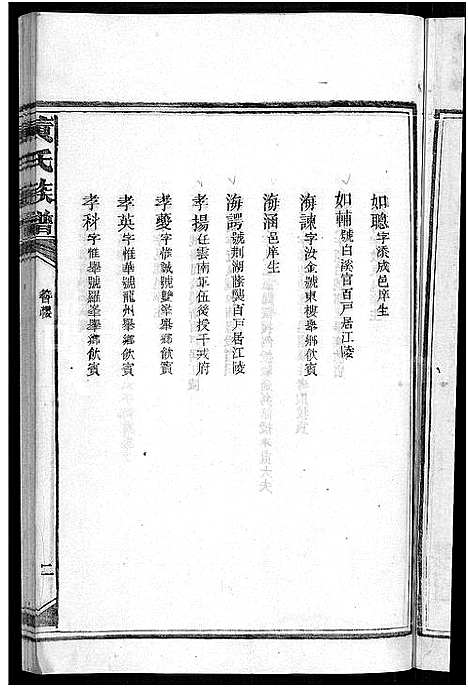 如聰字添成邑庠生
如輔號白溪官百戶居江陵
海諫字汝金號東樓舉鄉飲賓
海涵邑庠生
海諤號荆湖廕襲百戶居江陵
孝揚任雲南軍伍後授千戎府
孝夔字惟誠號雙峯舉鄉飲賓
孝英字惟華號龍州舉鄉飲賓
孝科字惟舉號羅峯舉鄉飲賓
黃氏族譜
簪纓
二